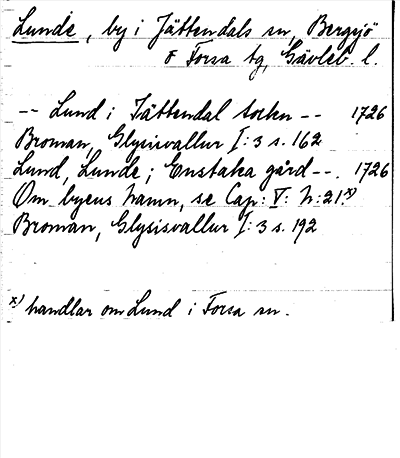 Lunde, by i Jättendals sn, Bergsjö
o Forsa tg, Gävleb. l.
-- Lund i Jättendal socken -- 1726
Broman, Glysisvallur I: 3 s. 162
Lund, Lunde; Enstaka gård --. 1726
Om byens namn, se Cap: V: n: 21.x)
Broman, Glysisvallur I: 3 s. 192
x) handlar om Lund i Forsa sn.